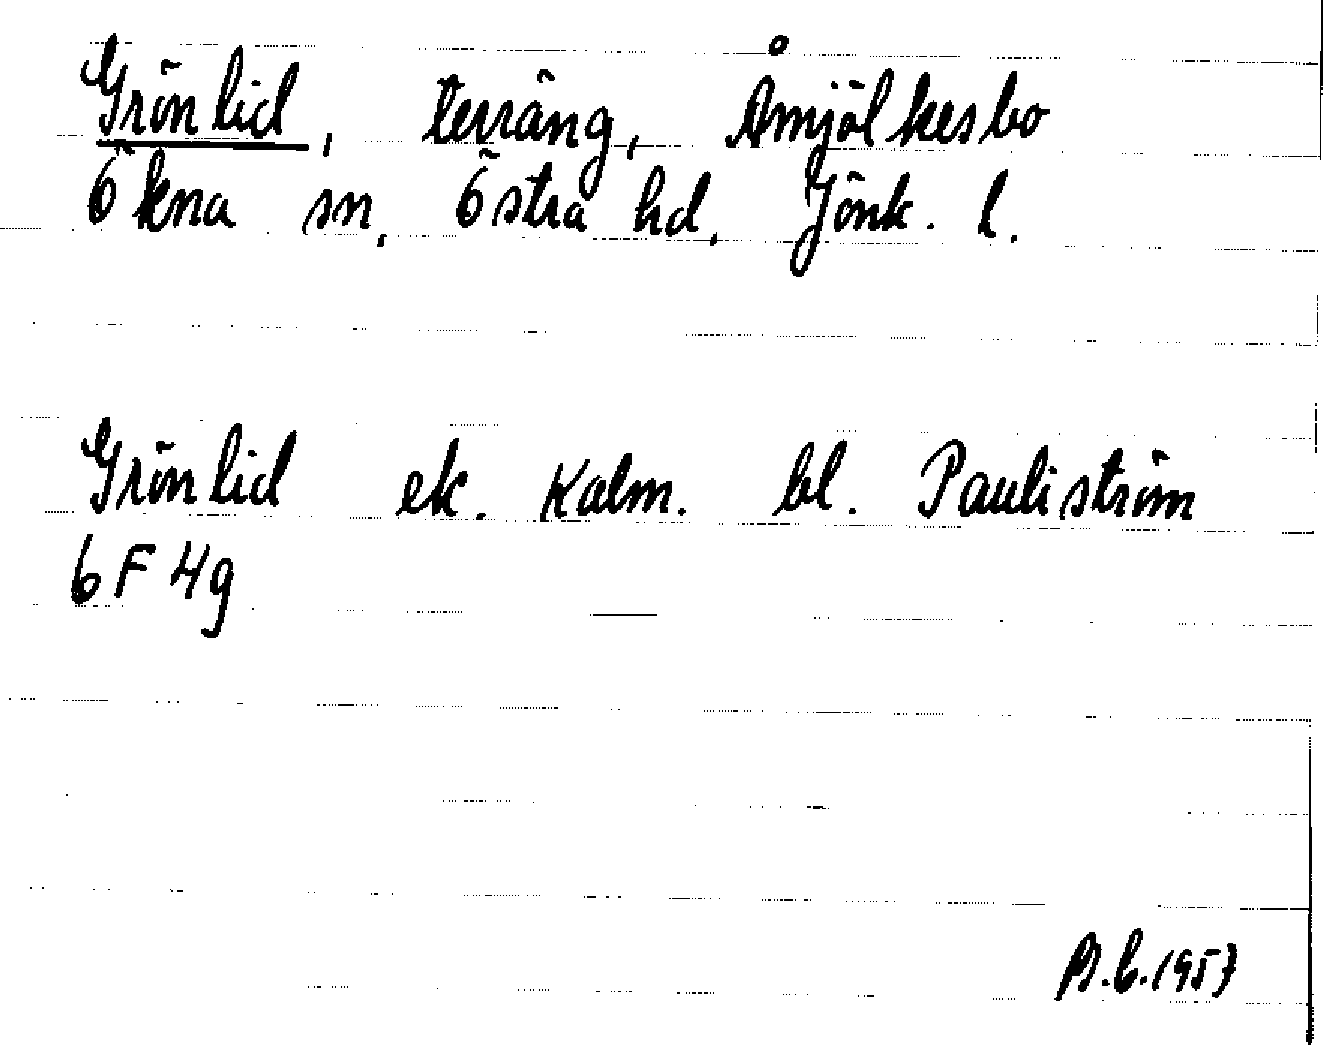 Grönlid, terräng, Åmjölkesbo
Ökna sn, Östra hd, Jönk. l.
Grönlid ek. Kalm. bl. Pauliström
6F4g
1957